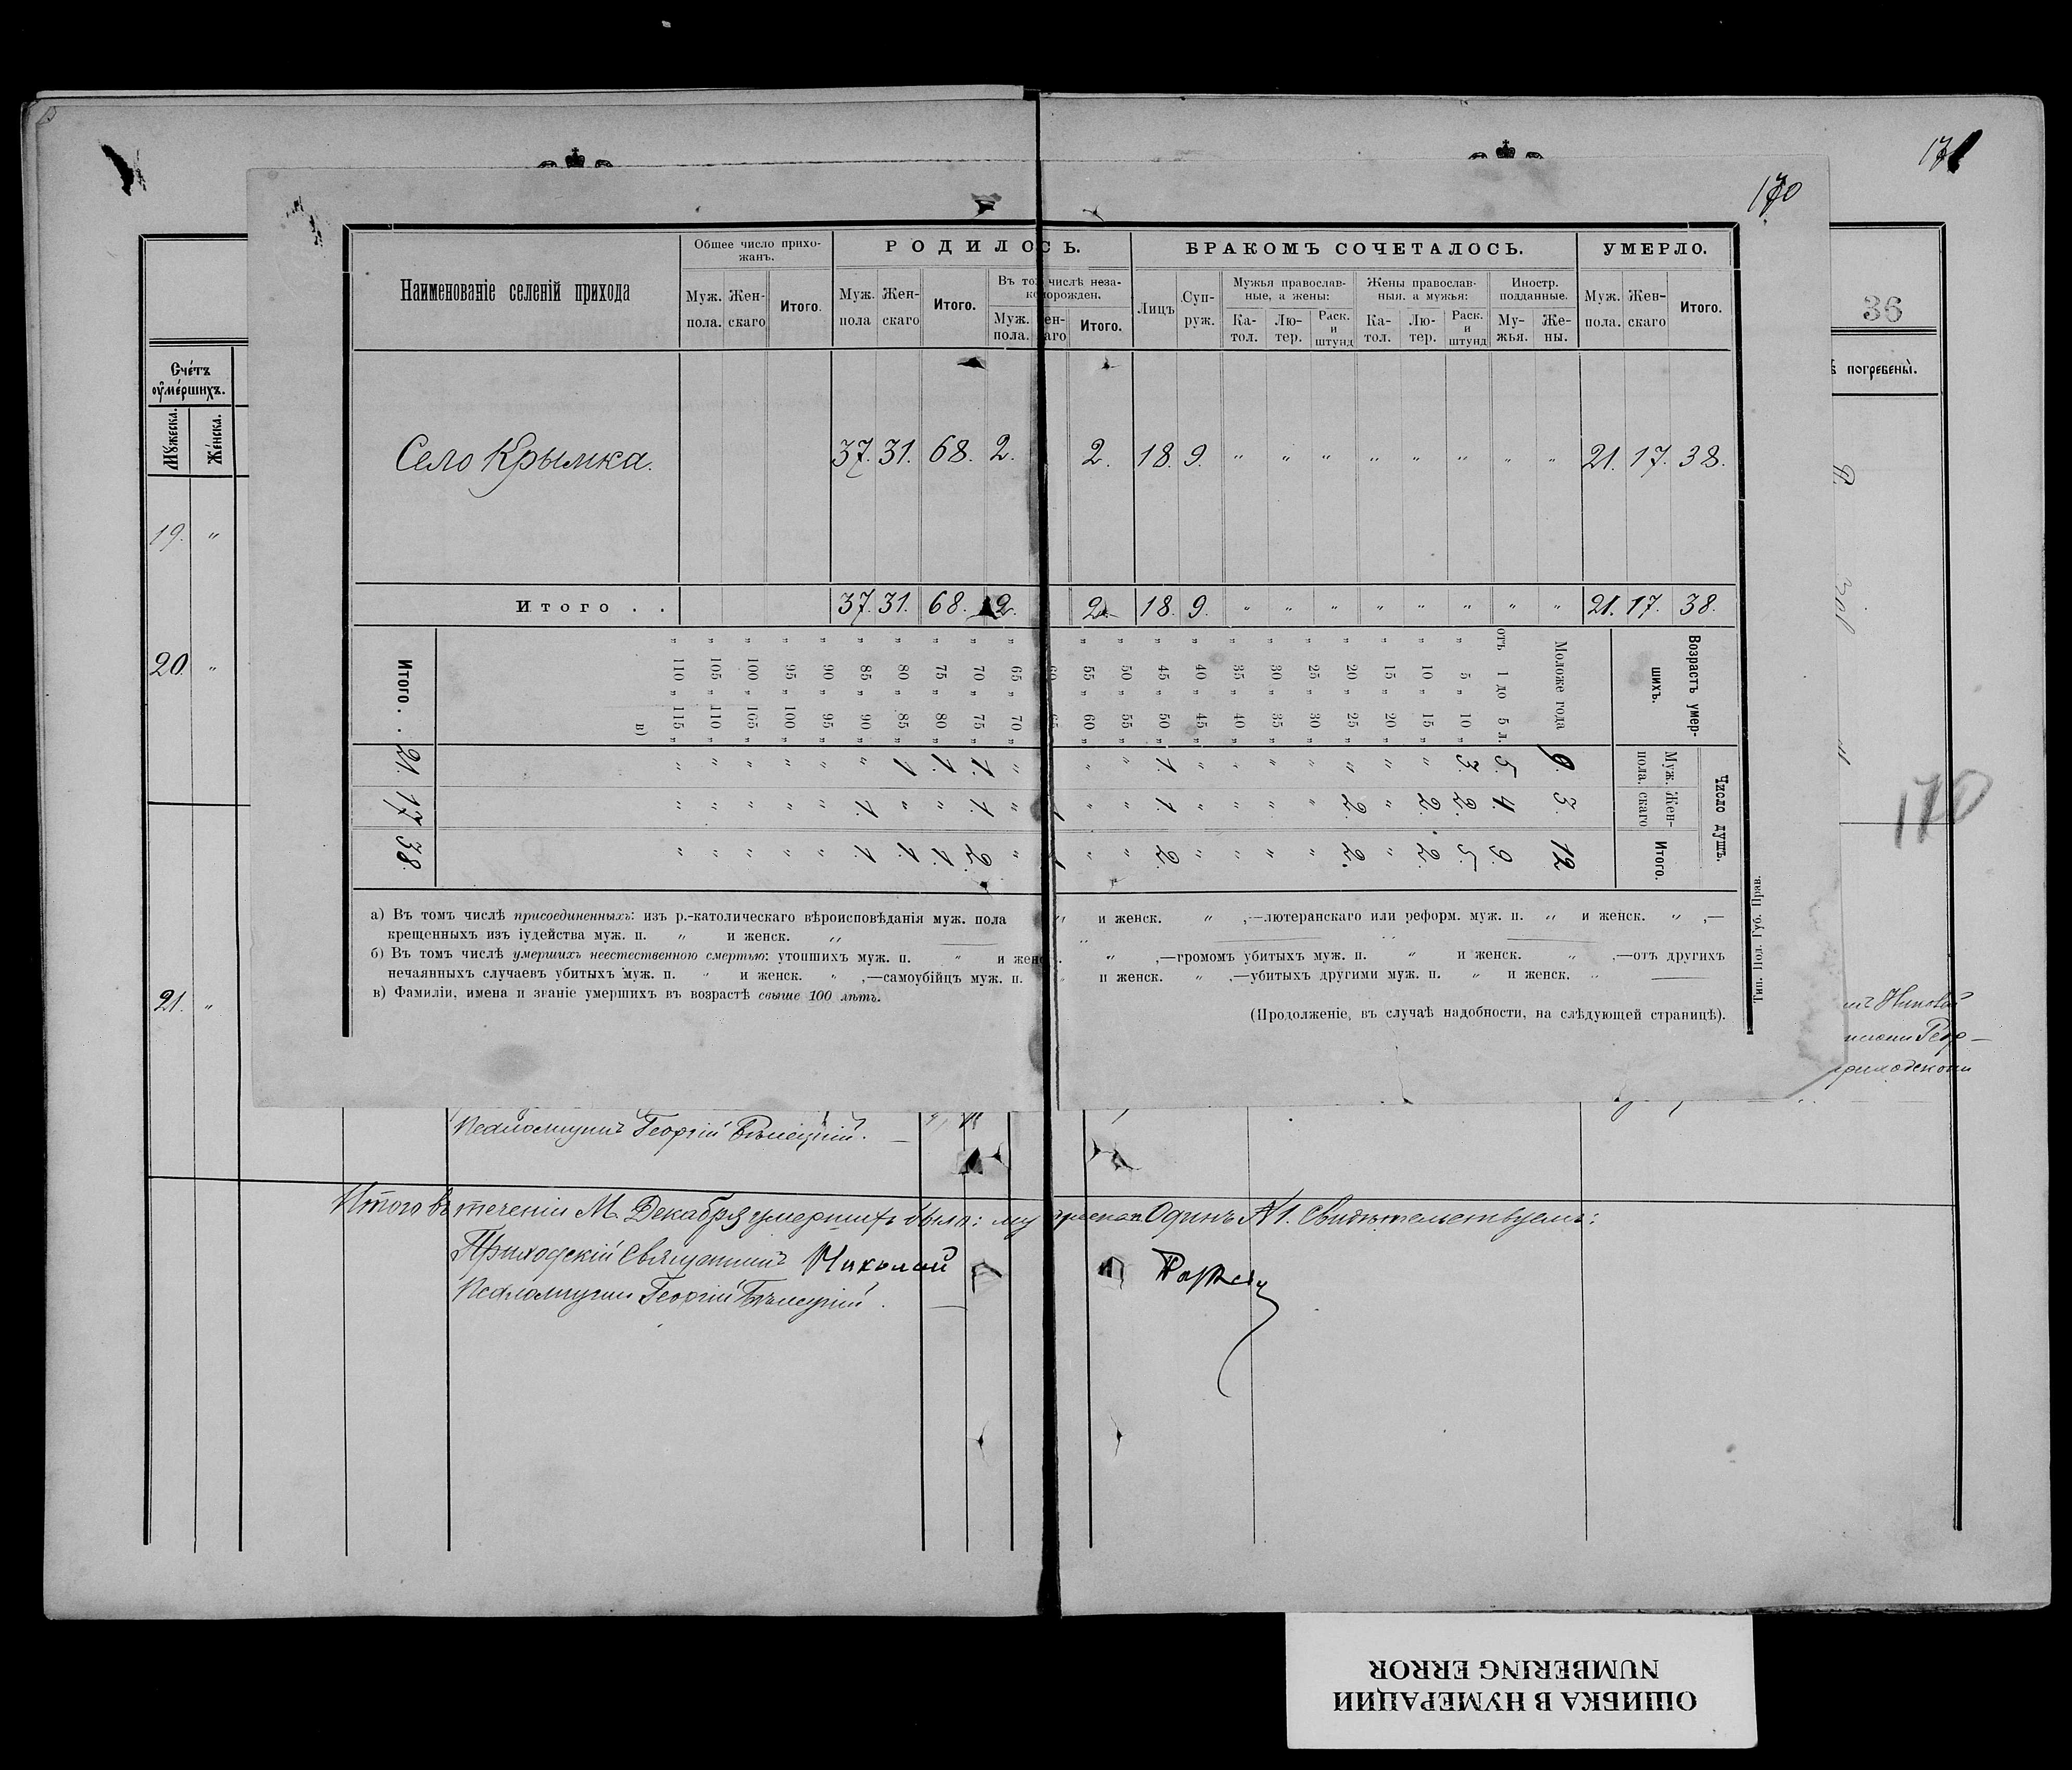 171
170
36
Счетъ оумершихъ.
Мужеска.
Женска.
ѣ погребены.
Наименованіе селеній прихода
Общее число прихо-
жанъ.
Муж. пола.
Жен- скаго
Итого.
РОДИЛОСЬ.
Муж. пола
Жен- скаго
Итого.
Въ том числѣ неза-
конорожден.
Муж. пола.
ен- аго
Итого.
БРАКОМЪ СОЧЕТАЛОСЬ.
Лицъ
Суп- руж.
Мужья православ-
ные, а жены:
Ка- тол.
Лю- тер.
Раск. и штунд
Жены православ-
ныя, а мужья:
Ка- тол.
Лю- тер.
Раск. и штунд
Иностр.
подданные.
Му- жья.
Же- ны.
УМЕРЛО.
Муж. пола.
Жен- скаго
Итого.
Село Крымка. 37. 31. 68. 2. 2. 18. 9. " " " " " " " " 21. 17. 38.
Итого . . 37. 31. 68. 2. 2. 18. 9. " " " " " " " " 21. 17. 38.
Возрастъ умер-
шихъ.
Число душъ.
Муж. пола.
Жен- скаго
Итого.
Моложе года 9. 3. 12
отъ 1 до 5 л. 5. 4. 9.
" 5 " 10 " 3. 2. 5.
" 10 " 15 " " 2. 2.
" 15 " 20 " " " "
" 20 " 25 " " 2. 2.
" 25 " 30 " " " "
" 30 " 35 " " " "
" 35 " 40 " " " "
" 40 " 45 " " " "
" 45 " 50 " 1. 1. 2.
" 50 " 55 " " " "
" 55 " 60 " " " "
60 65 1 1
" 65 " 70 " " " "
" 70 " 75 " 1. 1. 2.
" 75 " 80 " 1. " 1.
" 80 " 85 " 1 " 1.
" 85 " 90 " " 1. 1.
" 90 " 95 " " " "
" 95 " 100 " " " "
" 100 " 105 " " " "
" 105 " 110 " " " "
" 110 " 115 " " " "
в)
Итого . . 21. 17 38.
а) Въ томъ числѣ присоединенныхъ: изъ р.-католическаго вѣроисповѣданія муж. пола " и женск. " ,—лютеранскаго или реформ. муж. п. " и женск. " ,—
крещенныхъ изъ іудейства муж. п. " и женск. "
б) Въ томъ числѣ умершихъ неестественною смертью: утопшихъ муж. п. " и женс. " ,—громомъ убитыхъ муж. п. " и женск. " ,—отъ другихъ
нечаянныхъ случаевъ убитыхъ муж. п. " и женск. " ,—самоубійцъ муж. п. " и женск. " ,—убитыхъ другими муж. п. " и женск. "
в) Фамиліи, имена и званіе умершихъ въ возрастѣ свыше 100 лѣтъ.
(Продолженіе, въ случаѣ надобности, на слѣдующей страницѣ).
Тип. Под. Губ. Прав.
19. "
20. "
170
21. "
Псаломщикъ Георгій Бѣлецкій.
Итого въ теченіи М. Декабря умершихъ было: му жеска Одинъ № 1. Свидѣтельствуемъ:
Приходскій Священникъ Николай
Псаломщикъ Георгій Бѣлецкій.
ОШИБКА В НУМЕРАЦИИ
NUMBERING ERROR